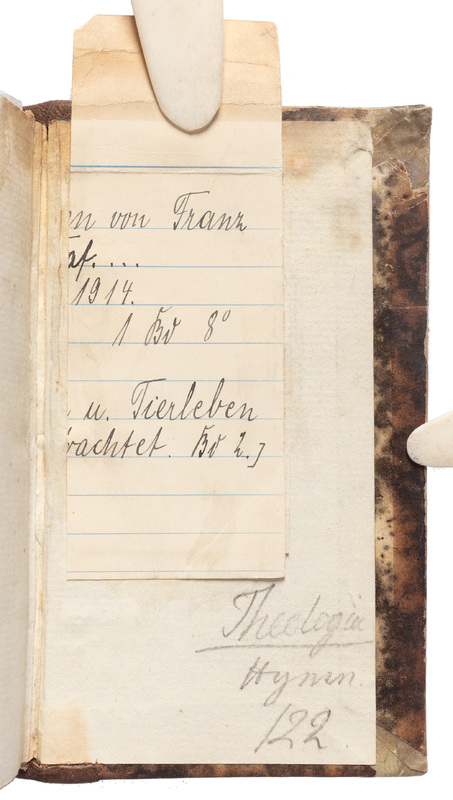 en von Franz
af. ...
1914.
1 Bd 8°
u. Tierleben
rachtet. Bd 2.]
Theologia
Hymn.
122